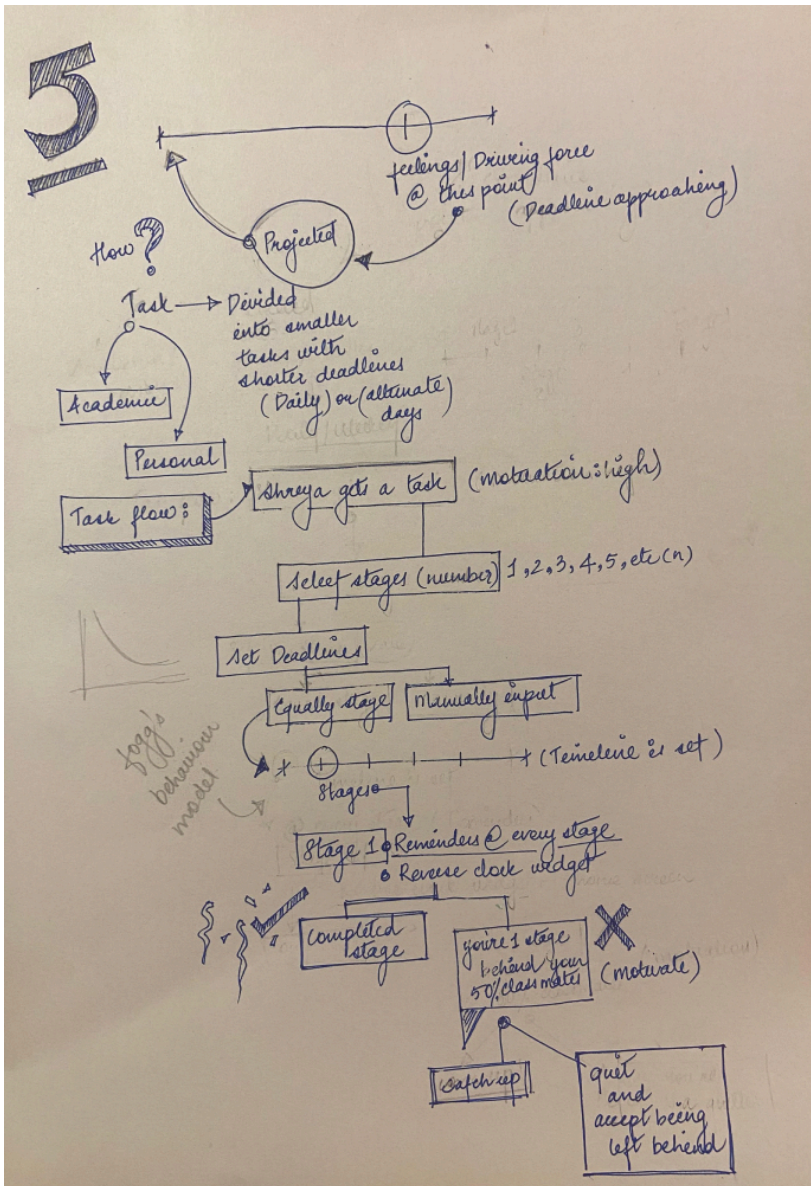 5
feelings/Driving force
@ this point
(Deadline approaching)
Projected
How?
Task → Divided
into smaller
tasks with
shorter deadlines
(Daily) or (alternate)
days
Academic
Personal
Task flow:
Shreya gets a task (motivation: high)
Select stages (number) 1, 2, 3, 4, 5, etc (n)
Set Deadlines
Equally stage
Manually input
(Timeline is set)
Stages
fogg's
behaviour
model
Stage 1
Reminders @ every stage
Reverse clock widget
Completed
stage
you're 1 stage
behind your
50% classmates
(motivate)
Catch up
quit
and
accept being
left behind